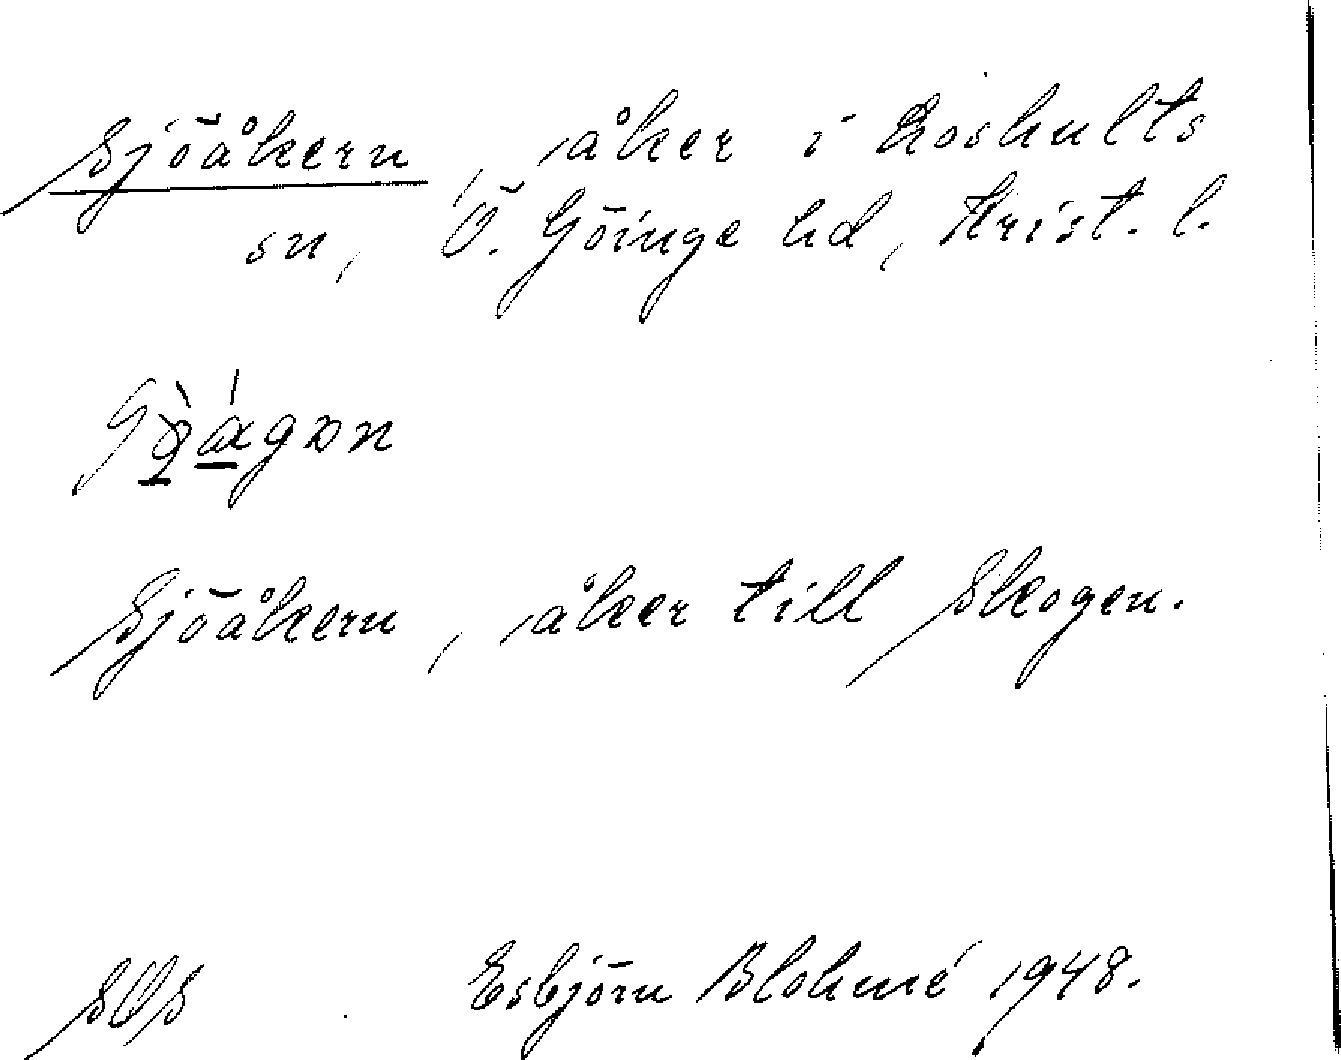 Sjöåkern, åker i Loshults
sn, Ö. Göinge hd, Krist. l.
Sjöåkern, åker till Skogen.
SOS Esbjörn Blohmé 1948.